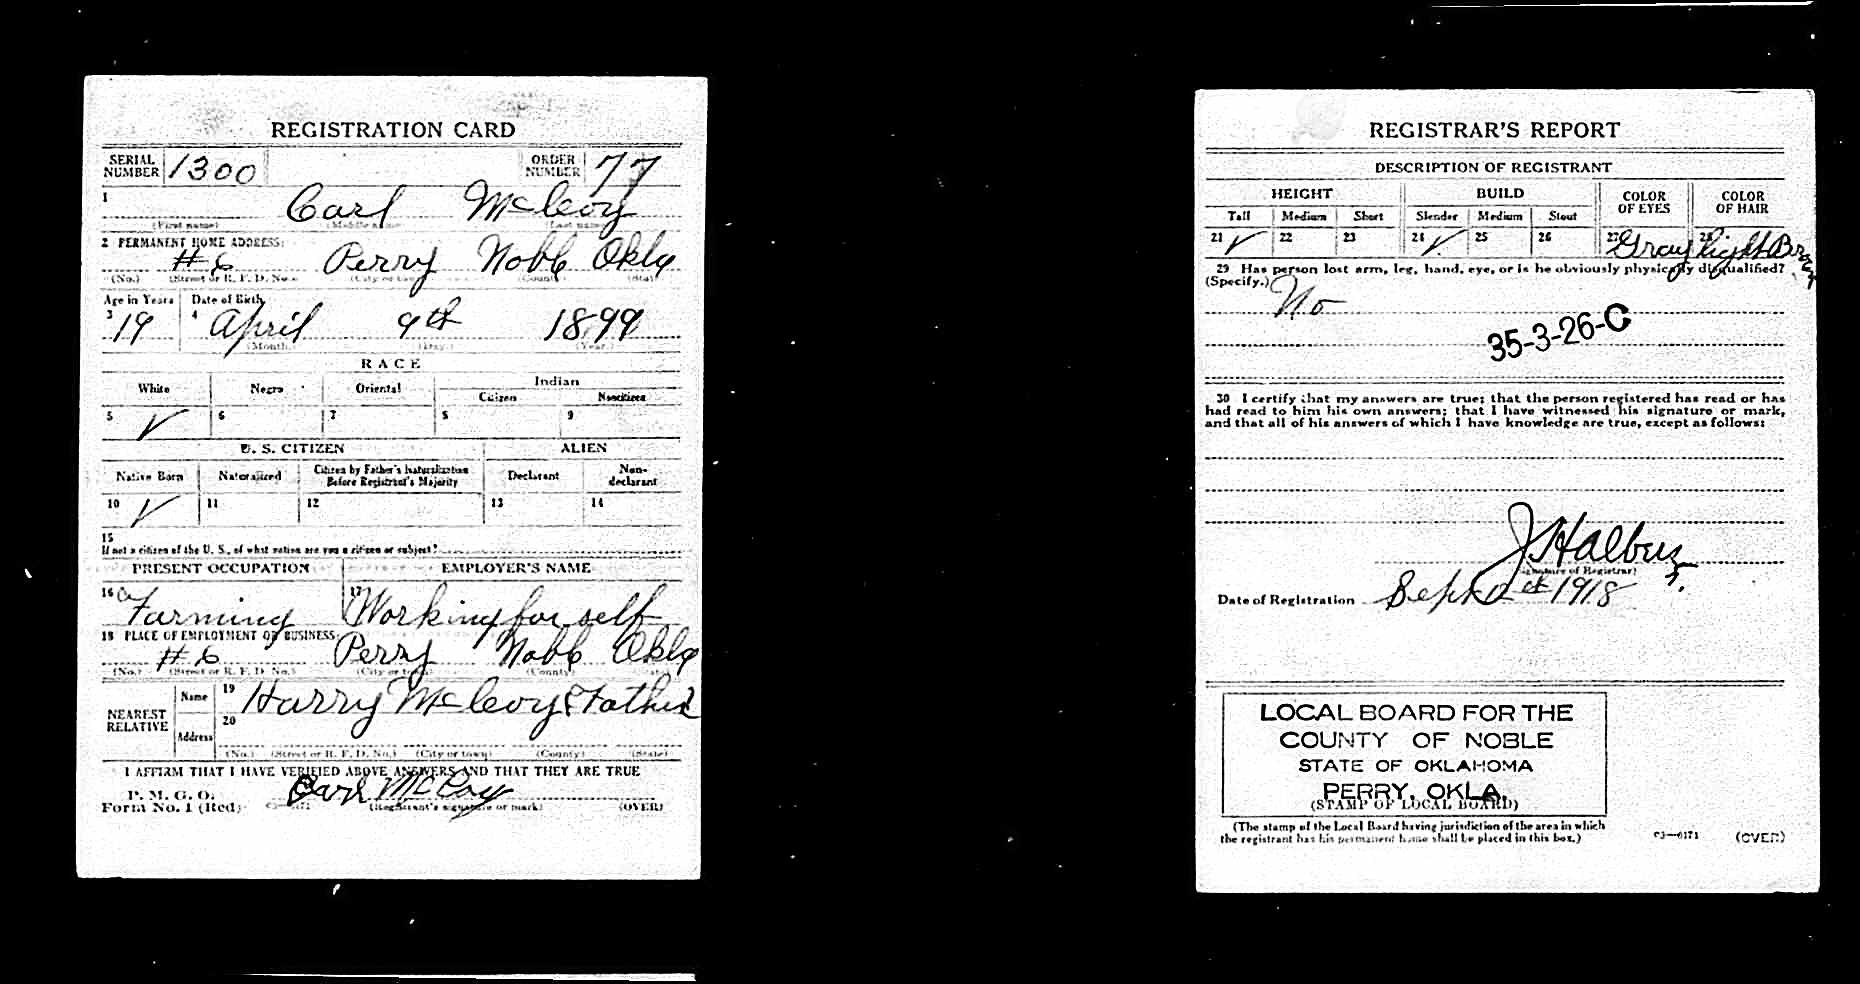 REGISTRATION CARD
SERIAL NUMBER 1300 ORDER NUMBER 77
1 Carl McCevoy
(First name) (Middle name) (Last name)
2 PERMANENT HOME ADDRESS:
#6 Perry Noble Okla
(No.) (Street or R. F. D. No.) (City or town) (County) (State)
Age in Years Date of Birth
3 19 4 April 9th 1899
(Month.) (Day.) (Year.)
RACE
White Negro Oriental Indian
Citizen Noncitizen
5 ✓ 6 7 8 9
U. S. CITIZEN ALIEN
Native Born Naturalized Citizen by Father's Naturalization Before Registrant's Majority Declarant Non-declarant
10 ✓ 11 12 13 14
15
If not a citizen of the U. S., of what nation are you a citizen or subject?
PRESENT OCCUPATION EMPLOYER'S NAME
16 Farming 17 Working for self
18 PLACE OF EMPLOYMENT OR BUSINESS:
#6 Perry Noble Okla
(No.) (Street or R. F. D. No.) (City or town) (County) (State)
NEAREST RELATIVE Name 19 Harry McCevoy Father
Address 20
(No.) (Street or R. F. D. No.) (City or town) (County) (State)
I AFFIRM THAT I HAVE VERIFIED ABOVE ANSWERS AND THAT THEY ARE TRUE
P. M. G. O.
Form No. 1 (Red) Carl McCoy
(Registrant's signature or mark) (OVER)
REGISTRAR'S REPORT
DESCRIPTION OF REGISTRANT
HEIGHT BUILD COLOR OF EYES COLOR OF HAIR
Tall Medium Short Slender Medium Stout
21 ✓ 22 23 24 ✓ 25 26 27 Gray 28 Light Brown
29 Has person lost arm, leg, hand, eye, or is he obviously physically disqualified?
(Specify.) No
35-3-26-C
30 I certify that my answers are true; that the person registered has read or has
had read to him his own answers; that I have witnessed his signature or mark,
and that all of his answers of which I have knowledge are true, except as follows:
(Signature of Registrar)
Date of Registration Sept 1918
LOCAL BOARD FOR THE
COUNTY OF NOBLE
STATE OF OKLAHOMA
PERRY, OKLA.
(STAMP OF LOCAL BOARD)
(The stamp of the Local Board having jurisdiction of the area in which
the registrant has his permanent home shall be placed in this box.)
03—6171 (OVER)